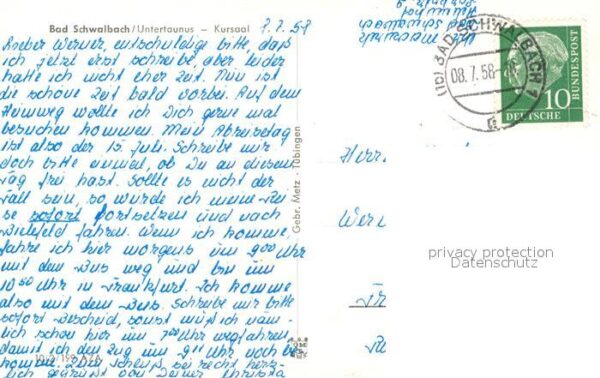 Bad Schwalbach/Untertaunus – Kursaal
7.7.58
Lieber Werner, entschuldige bitte, daß
ich jetzt erst schreibe, aber leider
hatte ich nicht eher Zeit. Nun ist
die schöne Zeit bald vorbei. Auf dem
Heimweg wollte ich Dich gerne mal
besuchen kommen. Mein Abreisetag
ist also der 15. Juli. Schreibe mir
doch bitte einmal, ob Du an diesem
Tag frei hast. Sollte es nicht der
Fall sein, so würde ich meine Rei
se sofort fortsetzen und nach
Bielefeld fahren. Wenn ich komme,
fahre ich hier morgens um 9 00 Uhr
mit dem Bus weg und bin um
10 50 Uhr in Frankfurt. Ich komme
also mit dem Bus. Schreibe mir bitte
sofort Bescheid, sonst muß ich näm-
lich schon hier um 7 00 Uhr wegfahren,
damit ich den Zug um 9 11 Uhr noch be
komme. Zum Schluß sei recht herz-
lich gegrüßt von Deiner Christa
Gebr. Metz · Tübingen
Bad Schwalbach
(16) BAD SCHWALBACH 1
08.7.58
10
DEUTSCHE
BUNDESPOST
Herr
Wer
Fr
privacy protection
Datenschutz